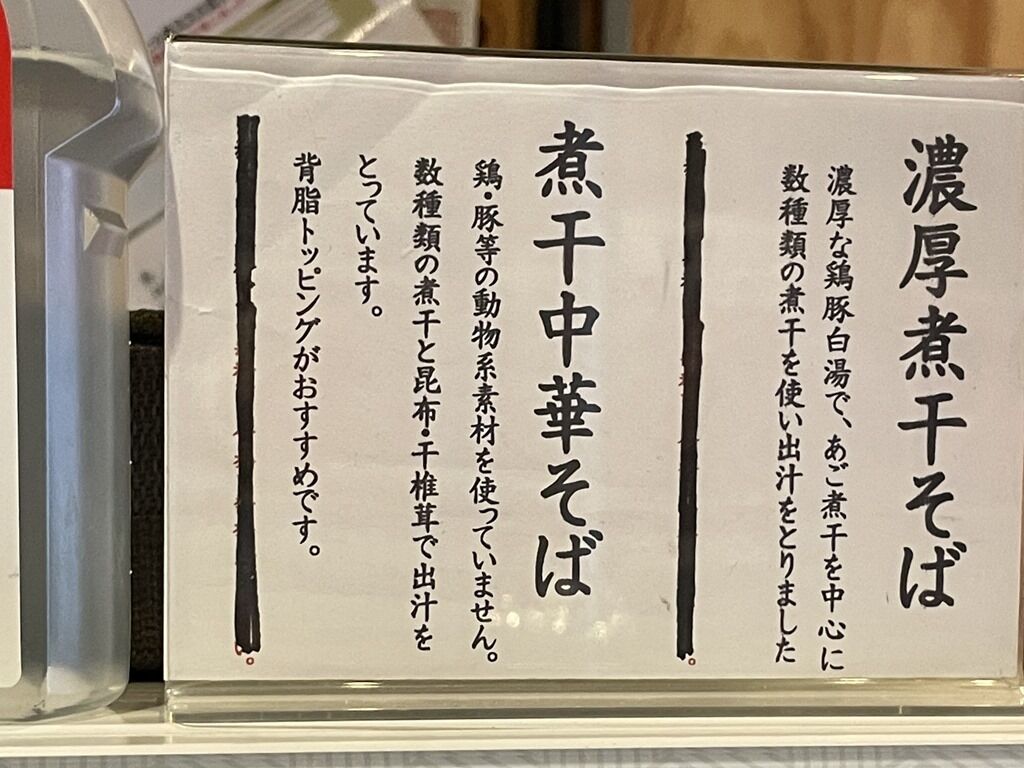 濃厚煮干そば
濃厚な鶏豚白湯で、あご煮干を中心に
数種類の煮干を使い出汁をとりました
煮干中華そば
鶏・豚等の動物系素材を使っていません。
数種類の煮干と昆布・干椎茸で出汁を
とっています。
背脂トッピングがおすすめです。